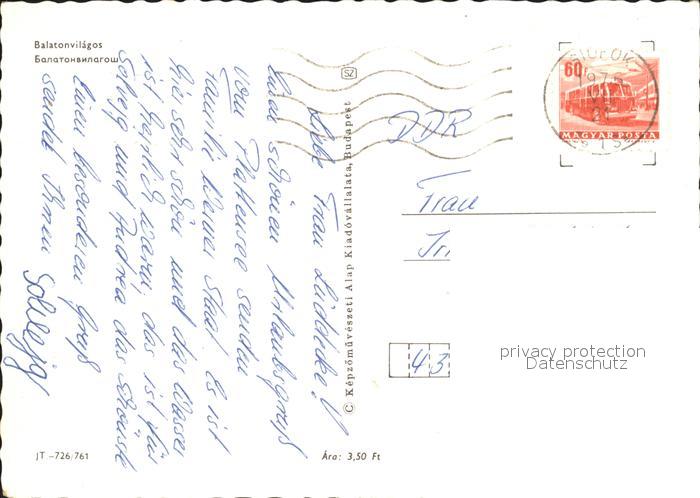 Balatonvilágos
Балатонвилагош
SZ
SIÓFOK
60
MAGYAR POSTA
Liebe Frau Lüddicke!
Einen schönen Urlaubsgruß
vom Plattensee senden
Familie Werner Staal. Es ist
hier sehr schön und das Wasser
ist herrlich warm, das ist für
Solveig und Andrea das Schönste
Einen besonderen Gruß
sendet Ihnen Solveig
© Képzőművészeti Alap Kiadóvállalata, Budapest
DDR
Frau
43
privacy protection
Datenschutz
JT -726/761
Ára: 3,50 Ft